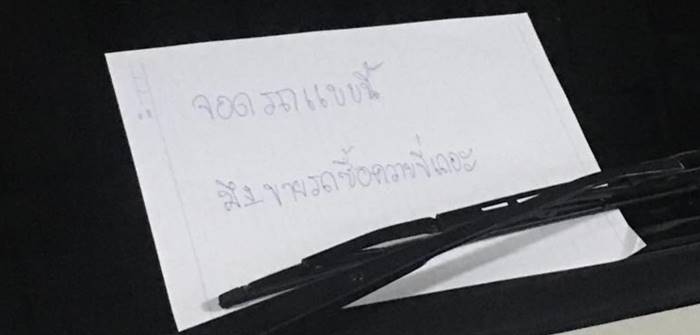 !!
จอดรถแบบนี้
มึงขายรถซื้อควายขี่เถอะ